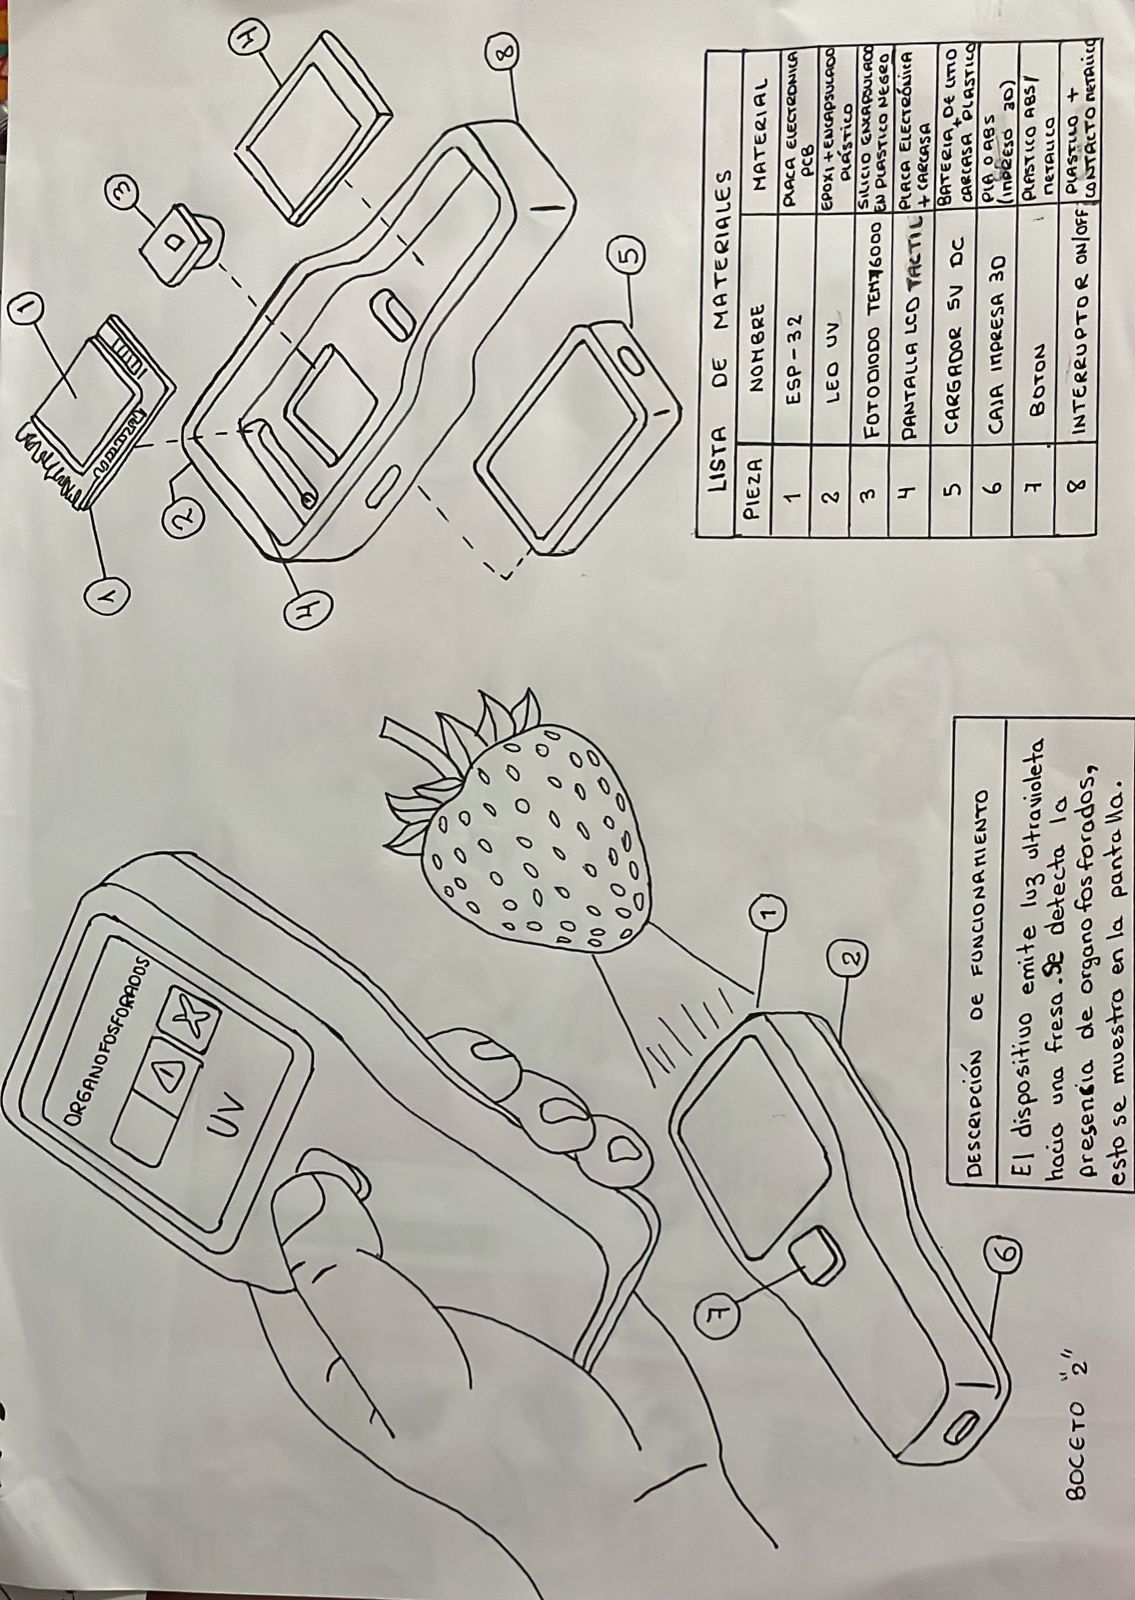 ORGANOFOSFORADOS
UV
BOCETO "2"
7
6
1
2
DESCRIPCIÓN DE FUNCIONAMIENTO
El dispositivo emite luz ultravioleta
hacia una fresa. Se detecta la
presencia de organofosforados,
esto se muestra en la pantalla.
1
1
3
4
2
4
8
5
LISTA DE MATERIALES
PIEZA NOMBRE MATERIAL
1 ESP-32 PLACA ELECTRONICA
PCB
2 LED UV EPOXI + ENCAPSULADO
PLÁSTICO
3 FOTODIODO SILICIO ENCAPSULADO
EN PLASTICO NEGRO
4 PANTALLA LCD TACTIL PLACA ELECTRÓNICA
+ CARCASA
5 CARGADOR 5V DC BATERIA DE LITIO
+ CARCASA PLASTICO
6 CAJA IMPRESA 3D PLA O ABS
(IMPRESO 3D)
7 BOTON PLASTICO ABS/
METALICO
8 INTERRUPTOR ON/OFF PLASTICO +
CONTACTO METALICO